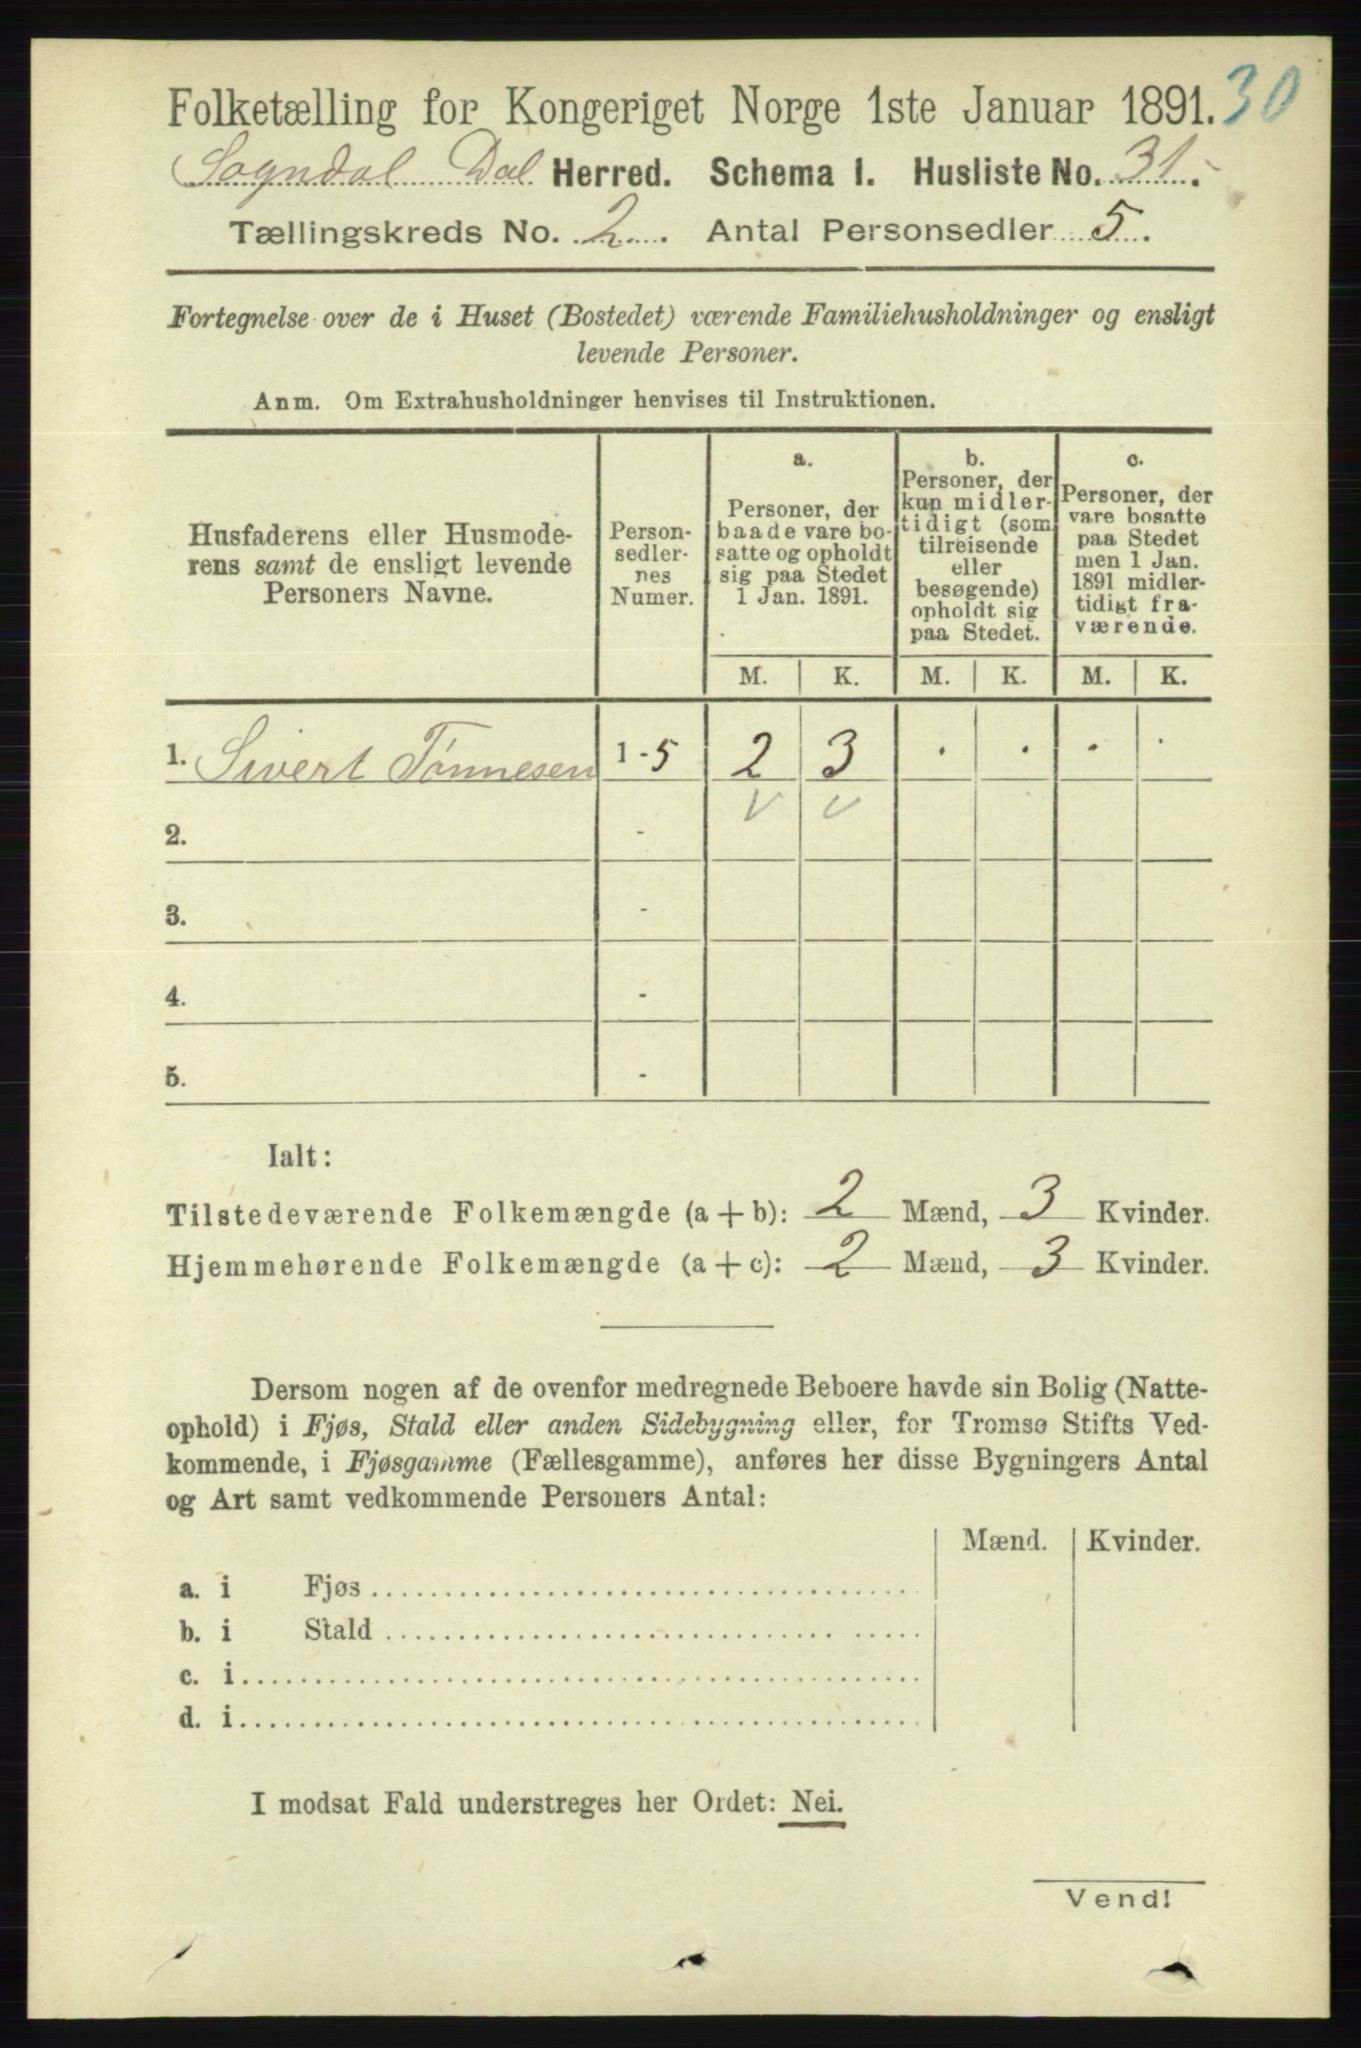 Folketælling for Kongeriget Norge 1ste Januar 1891. 30
Sogndal Dal Herred. Schema 1. Husliste No. 31.
Tællingskreds No. 2. Antal Personsedler 5.
Fortegnelse over de i Huset (Bostedet) værende Familiehusholdninger og ensligt
levende Personer.
Anm. Om Extrahusholdninger henvises til Instruktionen.
Husfaderens eller Husmode-
rens samt de ensligt levende
Personers Navne.
Person-
sedler-
nes
Numer.
a.
Personer, der
baade vare bo-
satte og opholdt
sig paa Stedet
1 Jan. 1891.
b.
Personer, der
kun midler-
tidigt (som
tilreisende
eller
besøgende)
opholdt sig
paa Stedet.
c.
Personer, der
vare bosatte
paa Stedet
men 1 Jan.
1891 midler-
tidigt fra-
værende.
M. K. M. K. M. K.
1. Sivert Tønnesen 1-5 2 3 . . . .
2. -
3. -
4. -
5. -
Ialt:
Tilstedeværende Folkemængde (a + b): 2 Mænd, 3 Kvinder.
Hjemmehørende Folkemængde (a + c): 2 Mænd, 3 Kvinder.
Dersom nogen af de ovenfor medregnede Beboere havde sin Bolig (Natte-
ophold) i Fjøs, Stald eller anden Sidebygning eller, for Tromsø Stifts Ved-
kommende, i Fjøsgamme (Fællesgamme), anføres her disse Bygningers Antal
og Art samt vedkommende Personers Antal:
Mænd. Kvinder.
a. i Fjøs
b. i Stald
c. i
d. i
I modsat Fald understreges her Ordet: Nei.
Vend!